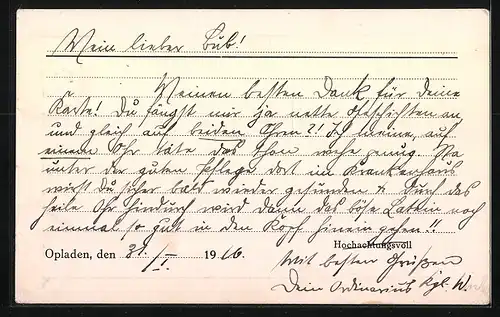 Mein lieber Bub!
Meinen besten Dank für Deine
Karte! Du fängst mir ja nette Geschichten an
und gleich auf beiden Ohren?! Ich meine, auf
einem Ohr täte das schon wehe genug. Na
unter der guten Pflege dort im Krankenhaus
wirst Du sicher bald wieder gesunden & durch das
heile Ohr hindurch wird dann das böse Latein noch
einmal so gut in den Kopf hinein gehen!!
Opladen, den 31. / I. 1916.
Hochachtungsvoll
Mit besten Grüßen
Dein Ordinarius Kgl. W.